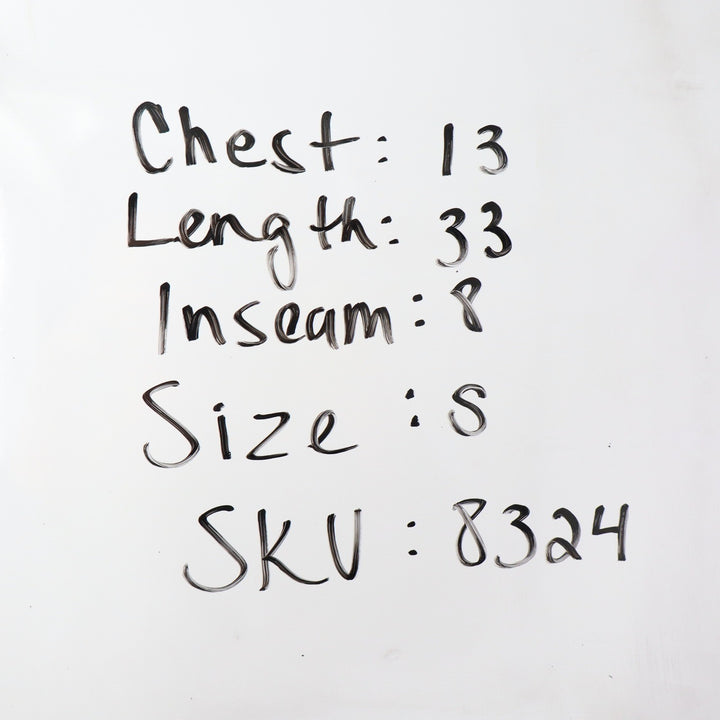 Chest: 13
Length: 33
Inseam: 8
Size: S
SKU: 8324